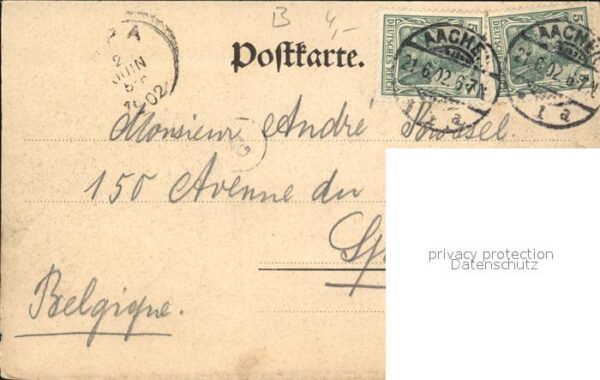 B 4,-
Postkarte.
PA
2
JUIN
02
5
5
DEUTSCHES REICH
AACHEN
21.6.02.6-7N
1 a
AACHEN
21.6.02.6-7N
1 a
Monsieur André
150 Avenue du
Sp
Belgique.
privacy protection
Datenschutz